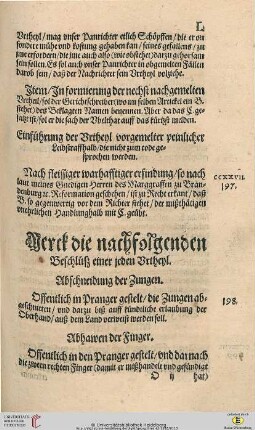 L
Vrtheyl / mag vnser Panrichter etlich Schöpffen / die er on
sondere mühe vnd kostung gehaben kan / seines gefallens / zu
jme erfordern / die jme auch also (wie obstehet) darzu gehorsam
sein sollen. Es sol auch vnser Panrichter in obgemelten Fällen
darob sein / daß der Nachrichter sein Vrtheyl volziehe.
Item / In formierung der nechst nachgemelten
Vrtheyl / sol der Gerichtschreiber / wo am selben Artickel ein B.
stehet / deß Beklagten Namen benennen. Aber da das C. ge-
setzt ist / sol er die sach der Vbelthat auff das kürtzst melden.
Einführung der Vrtheyl vorgemelter peinlicher
Leibstraffhalb / die nicht zum tode ge-
sprochen werden.
CCXXVII.
197.
Nach fleissiger warhafftiger erfindung / so nach
laut meines Gnedigen Herren des Marggraffen zu Bran-
denburg ꝛc. Reformation geschehen / ist zu Recht erkant / daß
B. so gegenwertig vor dem Richter stehet / der mißthätigen
vnehrlichen Handlung halb mit C. geübt.
Merck die nachfolgenden
Beschlüß einer jeden Vrtheyl.
Abschneidung der Zungen.
198.
Offentlich in Pranger gestelt / die Zungen ab-
geschnitten / vnd darzu biß auff kündtliche erlaubung der
Oberhand / auß dem Land verweist werden soll.
Abhawen der Finger.
Offentlich in den Pranger gestelt / vnd darnach
die zween rechten Finger (damit er mißhandelt vnd gesündigt
hat)
© Universitätsbibliothek Heidelberg